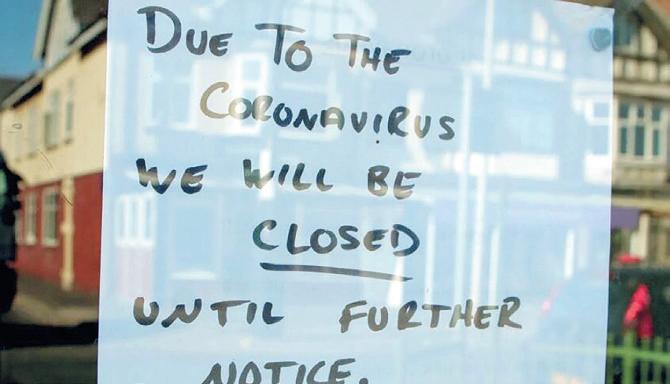 DUE TO THE
CORONAVIRUS
WE WILL BE
CLOSED
UNTIL FURTHER
NOTICE.